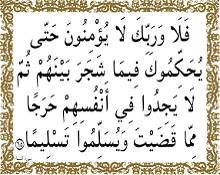 فَلَا وَرَبِّكَ لَا يُؤْمِنُونَ حَتَّى
يُحَكِّمُوكَ فِيمَا شَجَرَ بَيْنَهُمْ ثُمَّ
لَا يَجِدُوا فِي أَنْفُسِهِمْ حَرَجًا
مِمَّا قَضَيْتَ وَيُسَلِّمُوا تَسْلِيمًا